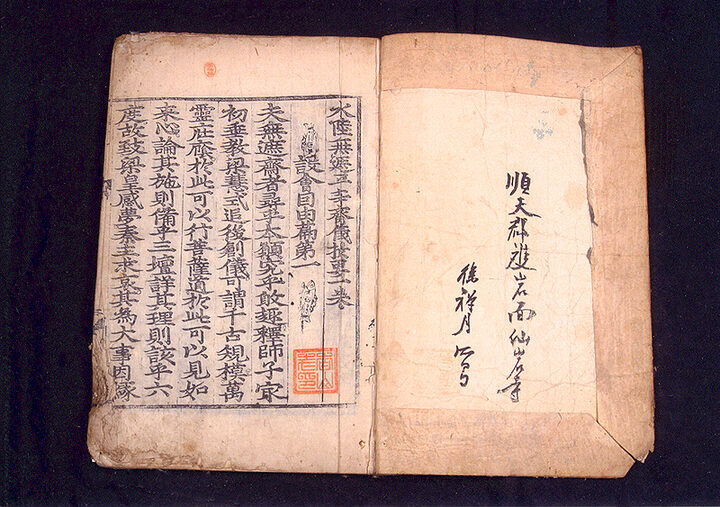 順天郡雙岩面仙岩寺
月
水陸無遮平等齋儀撮要一卷
設會因由篇第一
夫無遮齋者尋乎本願究乎啟趣釋師子家
初垂教梁慧式追後創儀可謂千古規模萬
靈庇廕於此可以行菩薩道於此可以見如
來心論其施則備乎三壇詳其理則該乎六
度故致梁皇感夢秦王求哀其為大事因緣